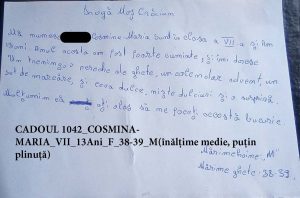 Dragă Moș Crăciun
Mă numesc Cosmina-Maria sunt în clasa a VII a și am
13 ani. Anul acesta am fost foarte cuminte, și îmi doresc
Un trening, o pereche de ghete, un calendar advent, un
set de marcăre, și ceva dulce, niște dulciuri și o surpriză.
Mulțumim că ați ales să ne faceți această bucurie.
Mărime haine „M"
Mărime ghete: 38-39
CADOUL 1042_COSMINA-
MARIA_VII_13Ani_F_38-39_M(înălțime medie, puțin
plinuță)